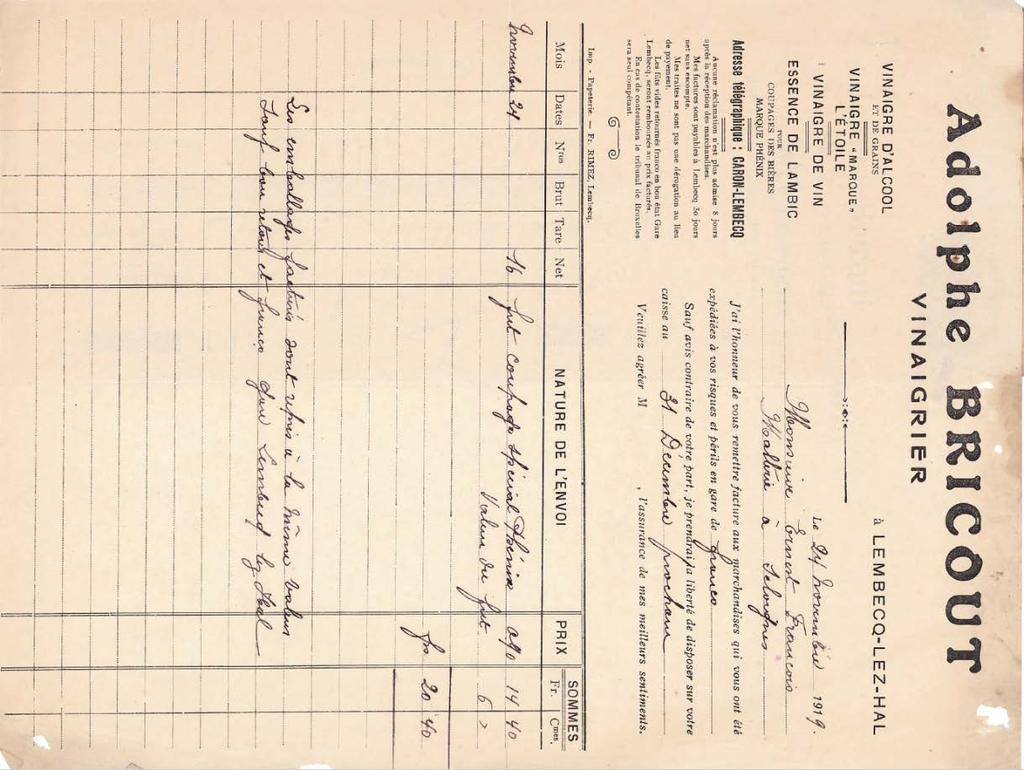 Adolphe BRICOUT
VINAIGRIER
à LEMBECQ-LEZ-HAL
VINAIGRE D'ALCOOL
ET DE GRAINS
VINAIGRE « MARQUE »
L'ÉTOILE
VINAIGRE DE VIN
ESSENCE DE LAMBIC
POUR
COUPAGES DES BIÈRES
MARQUE PHÉNIX
Adresse télégraphique : CARON-LEMBECQ
Aucune réclamation n'est plus admise 8 jours
après la réception des marchandises.
Mes factures sont payables à Lembecq 30 jours
net sans escompte.
Mes traites ne sont pas une dérogation au lieu
de payement.
Les fûts vides retournés franco en bon état Gare
Lembecq, seront remboursés au prix facturés.
En cas de contestation le tribunal de Bruxelles
sera seul compétant.
Le 24 novembre 1919.
Monsieur Ernest François
Malterie à Seloignes
J'ai l'honneur de vous remettre facture aux marchandises qui vous ont été
expédiées à vos risques et périls en gare de franco
Sauf avis contraire de votre part, je prendrai la liberté de disposer sur votre
caisse au 31 Décembre prochain
Veuillez agréer M , l'assurance de mes meilleurs sentiments.
Imp. - Papeterie. — Fr. RIMEZ, Lembecq.
Mois Dates Nros Brut Tare Net NATURE DE L'ENVOI PRIX SOMMES
Fr. Cmes.
Novembre 24 16 fut coupage spécial Phénix 0,90 14 40
Valeur du fut 6 »
frs 20 40
Les emballages facturés sont repris à la même valeur
Sauf bon retour et franco gare Lembecq lez Hal